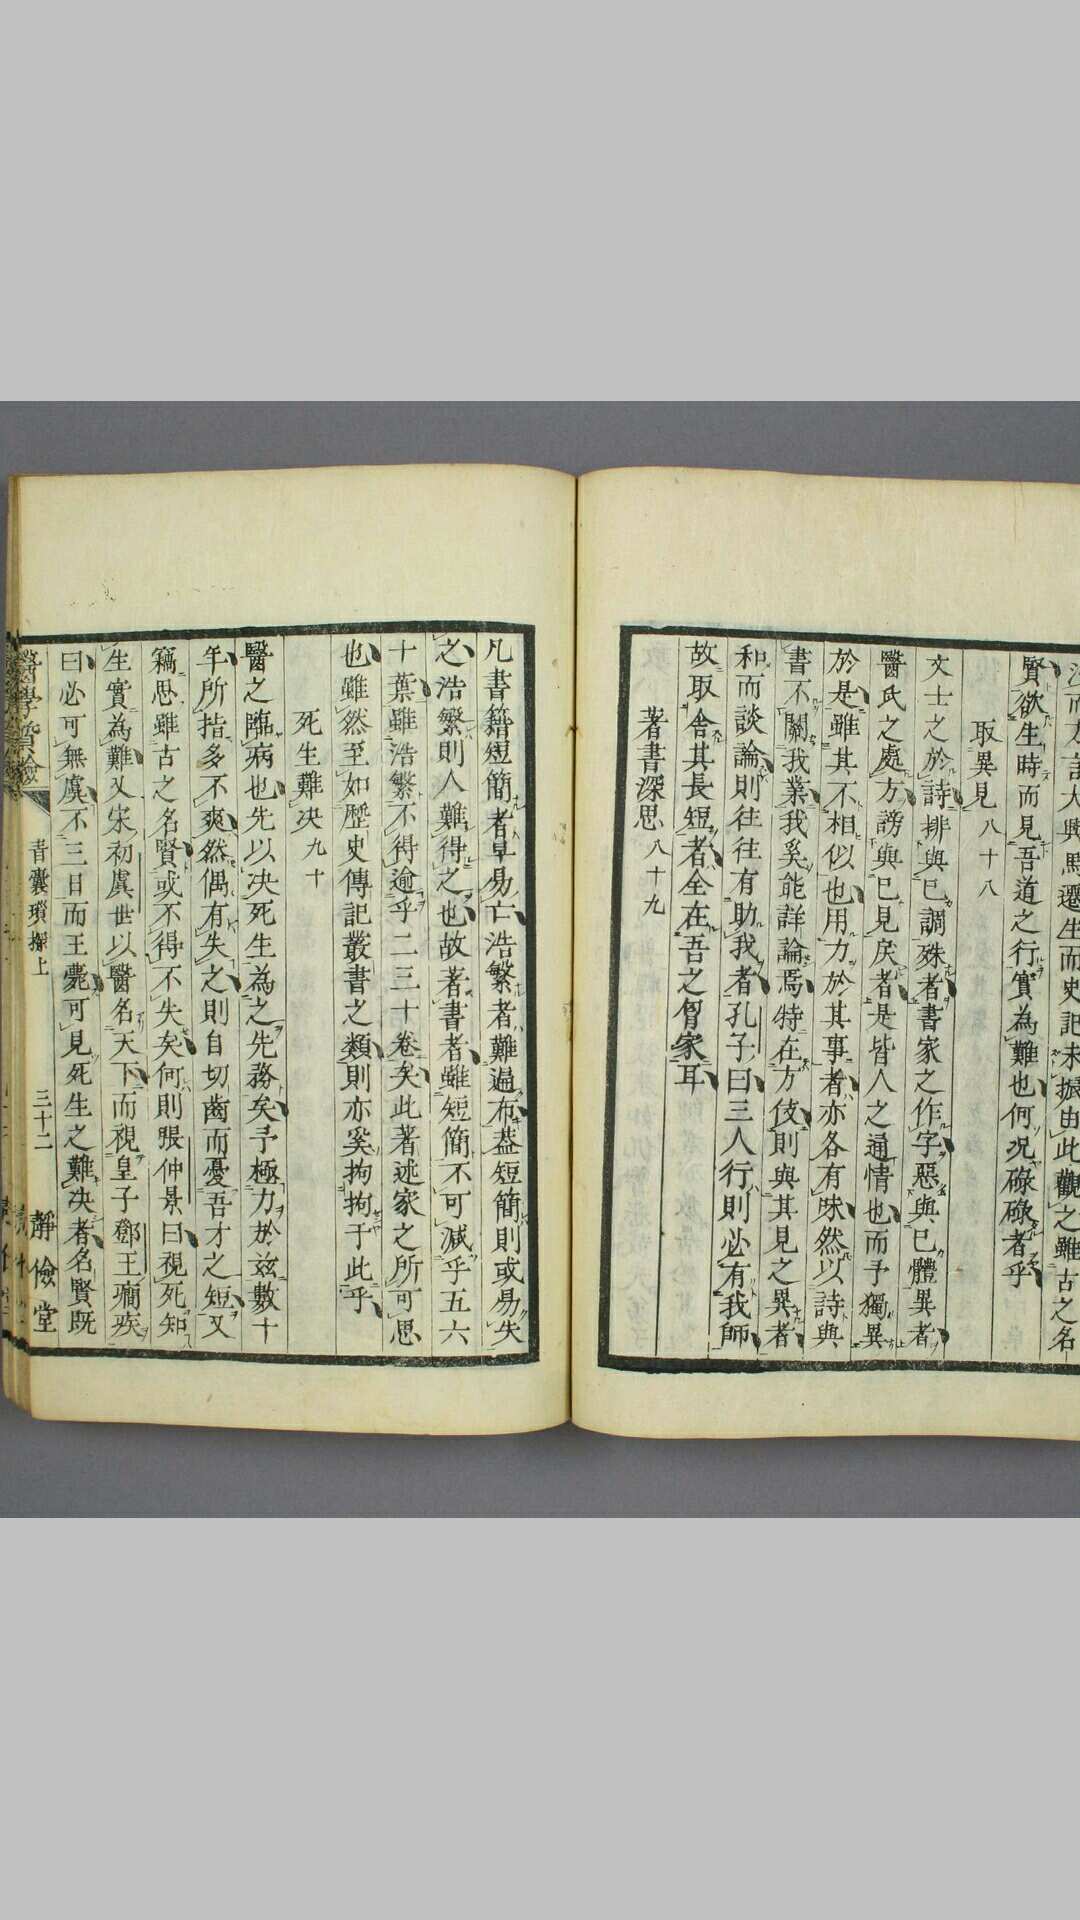 法而方言大興馬遷生而史記未振由此觀之雖古之名
賢欲生時而見吾道之行實為難也何况碌碌者乎
取異見 八十八
文士之於詩排與己調殊者書家之作字惡與己體異者
醫氏之處方謗與己見戾者是皆人之通情也而予獨異
於是雖其不相似也用力於其事者亦各有味然以詩與
書不關我業我奚能詳論焉特在方伎則與其見之異者
和而談論則往往有助我者孔子曰三人行則必有我師
故取舍其長短者全在吾之胷家耳
著書深思 八十九
凡書籍短簡者早易亡浩繁者難遍布葢短簡則或易失
之浩繁則人難得之也故著書者雖短簡不可減乎五六
十葉雖浩繁不得逾乎二三十卷矣此著述家之所可思
也雖然至如歷史傳記叢書之類則亦奚拘拘于此乎
死生難决 九十
醫之臨病也先以决死生為之先務矣予極力於玆數十
年所措多不爽然偶有失之則自切齒而憂吾才之短又
竊思雖古之名賢或不得不失矣何則張仲景曰視死知
生實為難又宋初虞世以醫名天下而視皇子鄧王癇疾
曰必可無虞不三日而王薨可見死生之難决者名賢既
醫學質驗
青囊瑣探上
三十二
靜儉堂